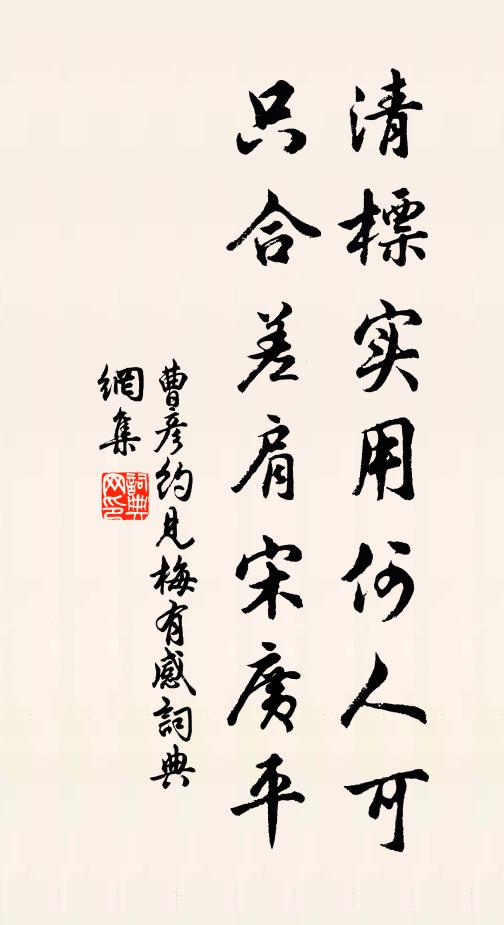 清標实用何人可
只合差肩宋廣平
曹彦約見梅有感詞典
網集
詞典
网印